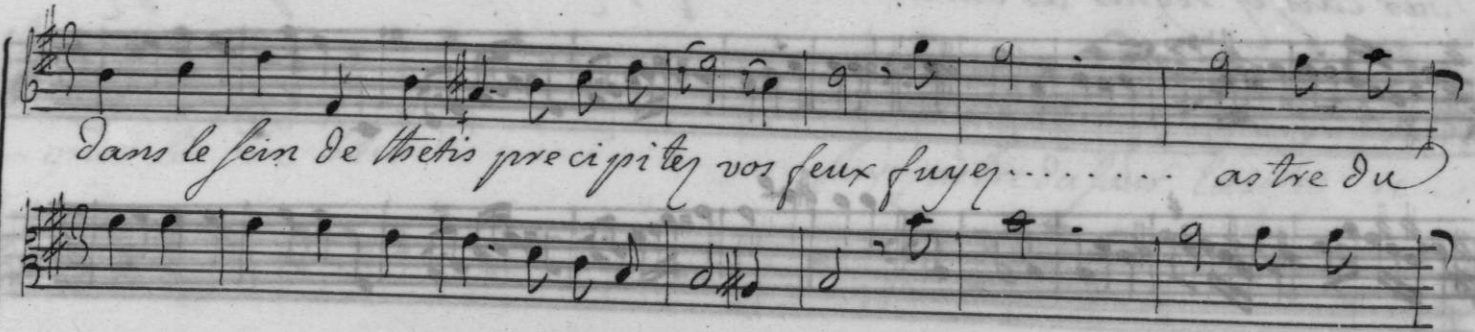 dans le sein de thetis precipitez vos feux fuyez......... astre du